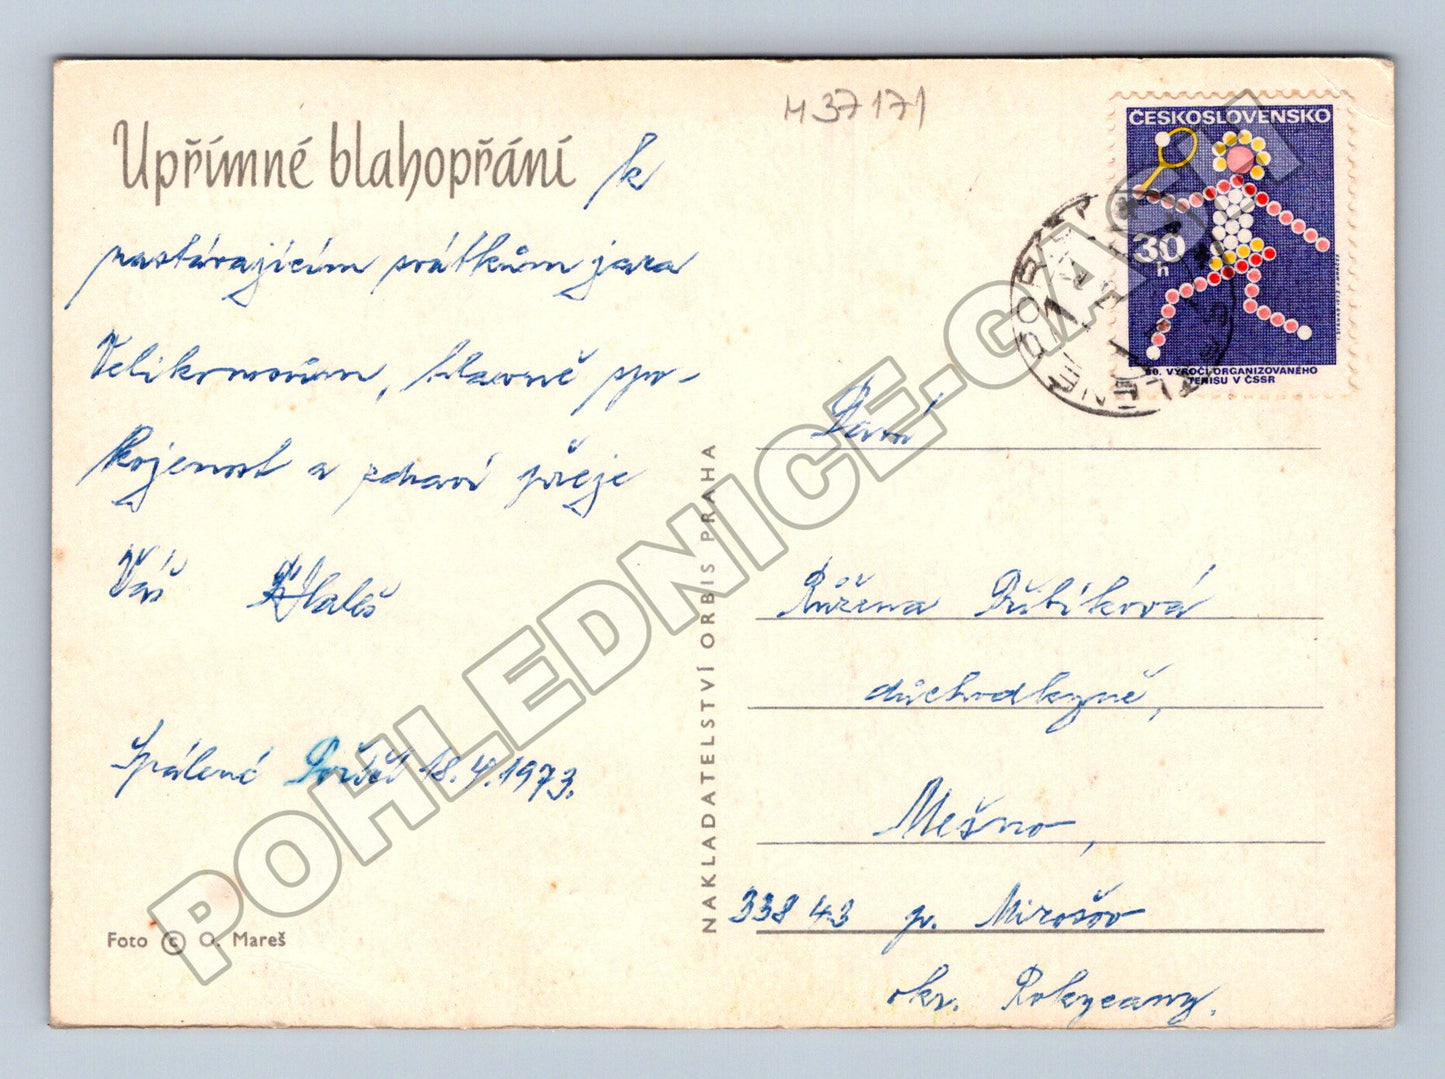 Upřímné blahopřání k
nastávajícím svátkům jara
Velikonocům, hlavně spo-
kojenost a zdraví přeje
Váš
Spálené Poříčí 18.4.1973.
Foto © O. Mareš
NAKLADATELSTVÍ ORBIS PRAHA
M 37171
ČESKOSLOVENSKO
30
h
80. VÝROČÍ ORGANIZOVANÉHO
TENISU V ČSSR
Paní
Růžena Přibíková
důchodkyně,
Mešno,
338 43 p. Mirošov
okr. Rokycany.
POHLEDNICE.CASH